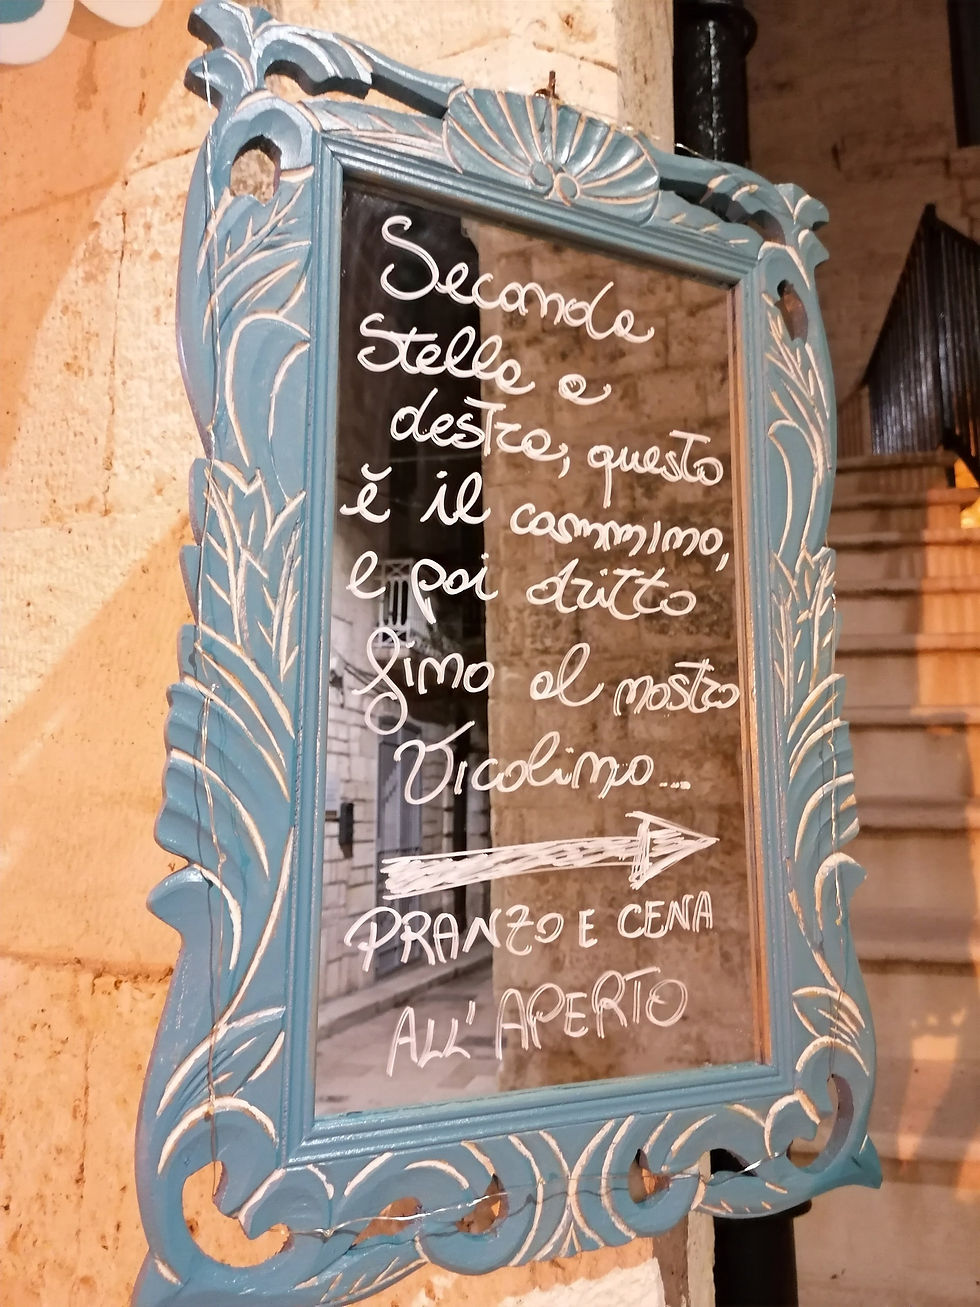 Seconda
stella a
destra, questo
è il cammino,
e poi dritto
fino al nostro
Vicolino...
PRANZO E CENA
ALL' APERTO